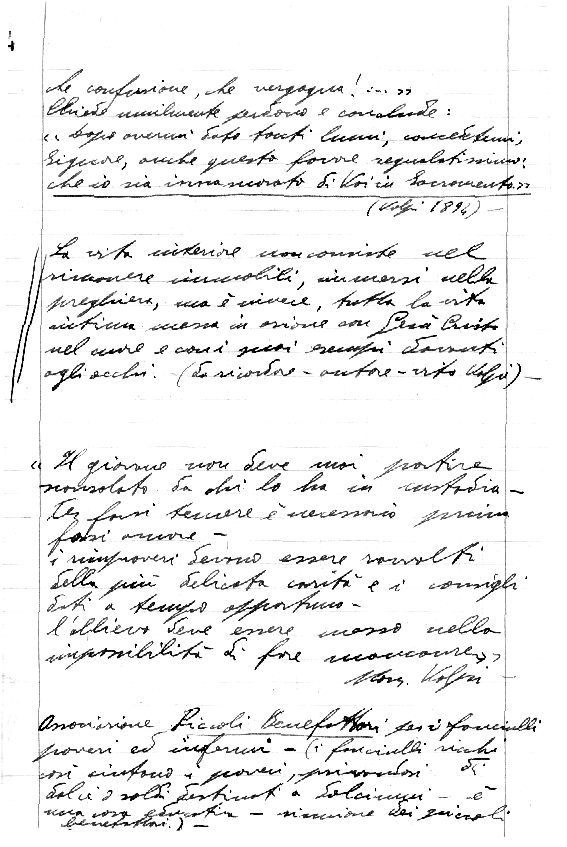 che confusione, che vergogna! ... »
Chiede umilmente perdono e conclude:
" Dopo avermi dato tanti lumi, concedetemi,
Signore, anche questo favore segnalatissimo:
che io sia innamorato di Voi in Sacramento. »
(Volpi 1894) -
La vita interiore non consiste nel
rimanere immobili, immersi nella
preghiera, ma è vivere, tutta la vita
intima messa in azione con Gesù Cristo
nel cuore e con i suoi esempi davanti
agli occhi. - (da ricordare - autore - vita Volpi) -
" Il giovane non deve mai partire
sconsolato da chi lo ha in custodia -
Per farsi temere è necessario prima
farsi amare -
i rimproveri devono essere ravvolti
della più delicata carità e i consigli
dati a tempo opportuno -
l'allievo deve essere messo nella
impossibilità di fare mancanze »
Mons. Volpi -
Associazione Piccoli Benefattori per i fanciulli
poveri ed infermi - (i fanciulli ricchi
così aiutano i poveri, privandosi di
dolci o soldi destinati a dolciumi - è
una cosa - riunione dei piccoli
benefattori.) -